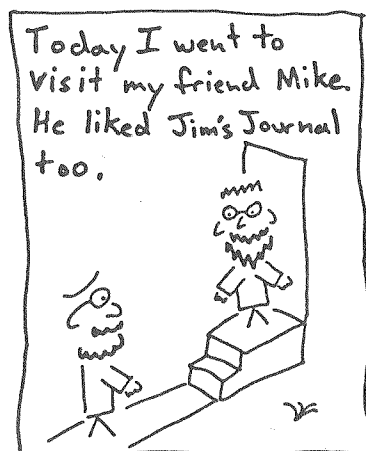 Today I went to
visit my friend Mike.
He liked Jim's Journal
too.